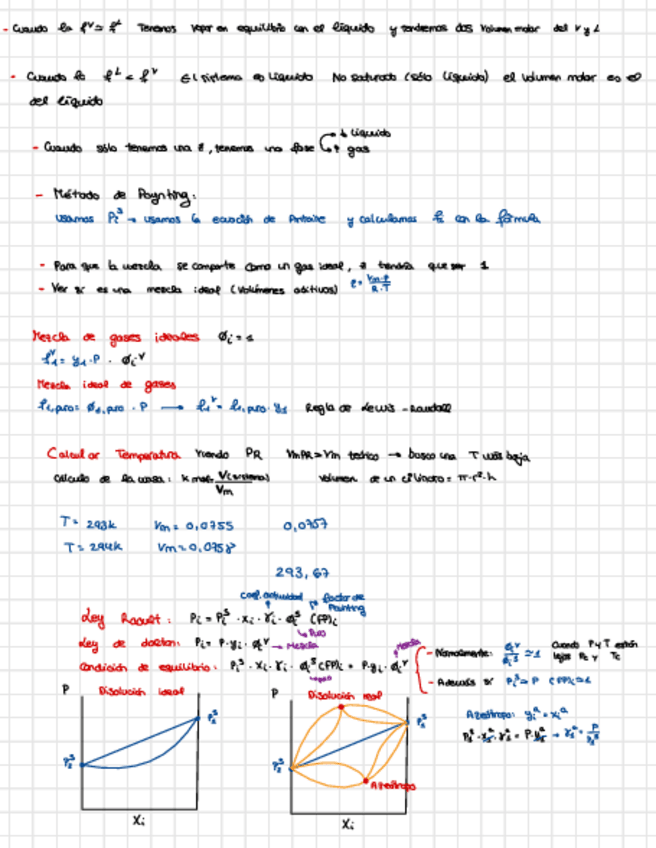 - Cuando la f^V = f^L Tenemos vapor en equilibrio con el líquido y tendremos dos volumen molar del V y L
- Cuando la f^L < f^V El sistema es líquido No saturado (sólo líquido) el volumen molar es el
del líquido
- Cuando sólo tenemos una z, tenemos una fase líquido
gas
- Método de Poynting:
usamos Pi^s → usamos la ecuación de Antoine y calculamos fL con la fórmula
- Para que la mezcla se comporte como un gas ideal, z tendría que ser 1
- Ver si es una mezcla ideal (volúmenes aditivos) z = Vm·P / R·T
Mezcla de gases ideales Øi = 1
f1^V = y1 · P · Øi^V
Mezcla ideal de gases
f1,puro = Ø1,puro · P → f1^V = f1,puro · y1 Regla de Lewis - Randall
Calcular Temperatura viendo PR VmPR > Vm teórico → busco una T más baja
Cálculo de la masa: k mol = V(cisterna) / Vm Volumen de un cilindro = π·r²·h
T = 293k Vm = 0,0755 0,0757
T = 294k Vm = 0,0758
293,67
coef. actividad factor de
Pointing
Ley Raoult: Pi = Pi^s · xi · γi · Øi^s (FP)i
Puro
Ley de Dalton: Pi = P · yi · Øi^V → Mezcla
Mezcla
Condición de equilibrio: Pi^s · xi · γi · Øi^s (FP)i = P · yi · Øi^V
puro
- Normalmente: Øi^V / Øi^s ≃ 1 Cuando P y T están
lejos Pc y Tc
- Además si Pi^s ≃ P (FP)i ≃ 1
P Disolución ideal
P1^s
P2^s
Xi
P Disolución real
P1^s
P2^s
Azeótropo
Xi
Azeótropo: yi^a = xi^a
P1^s · x1^a · γ1^a = P · y1^a → γ1^a = P / P1^s